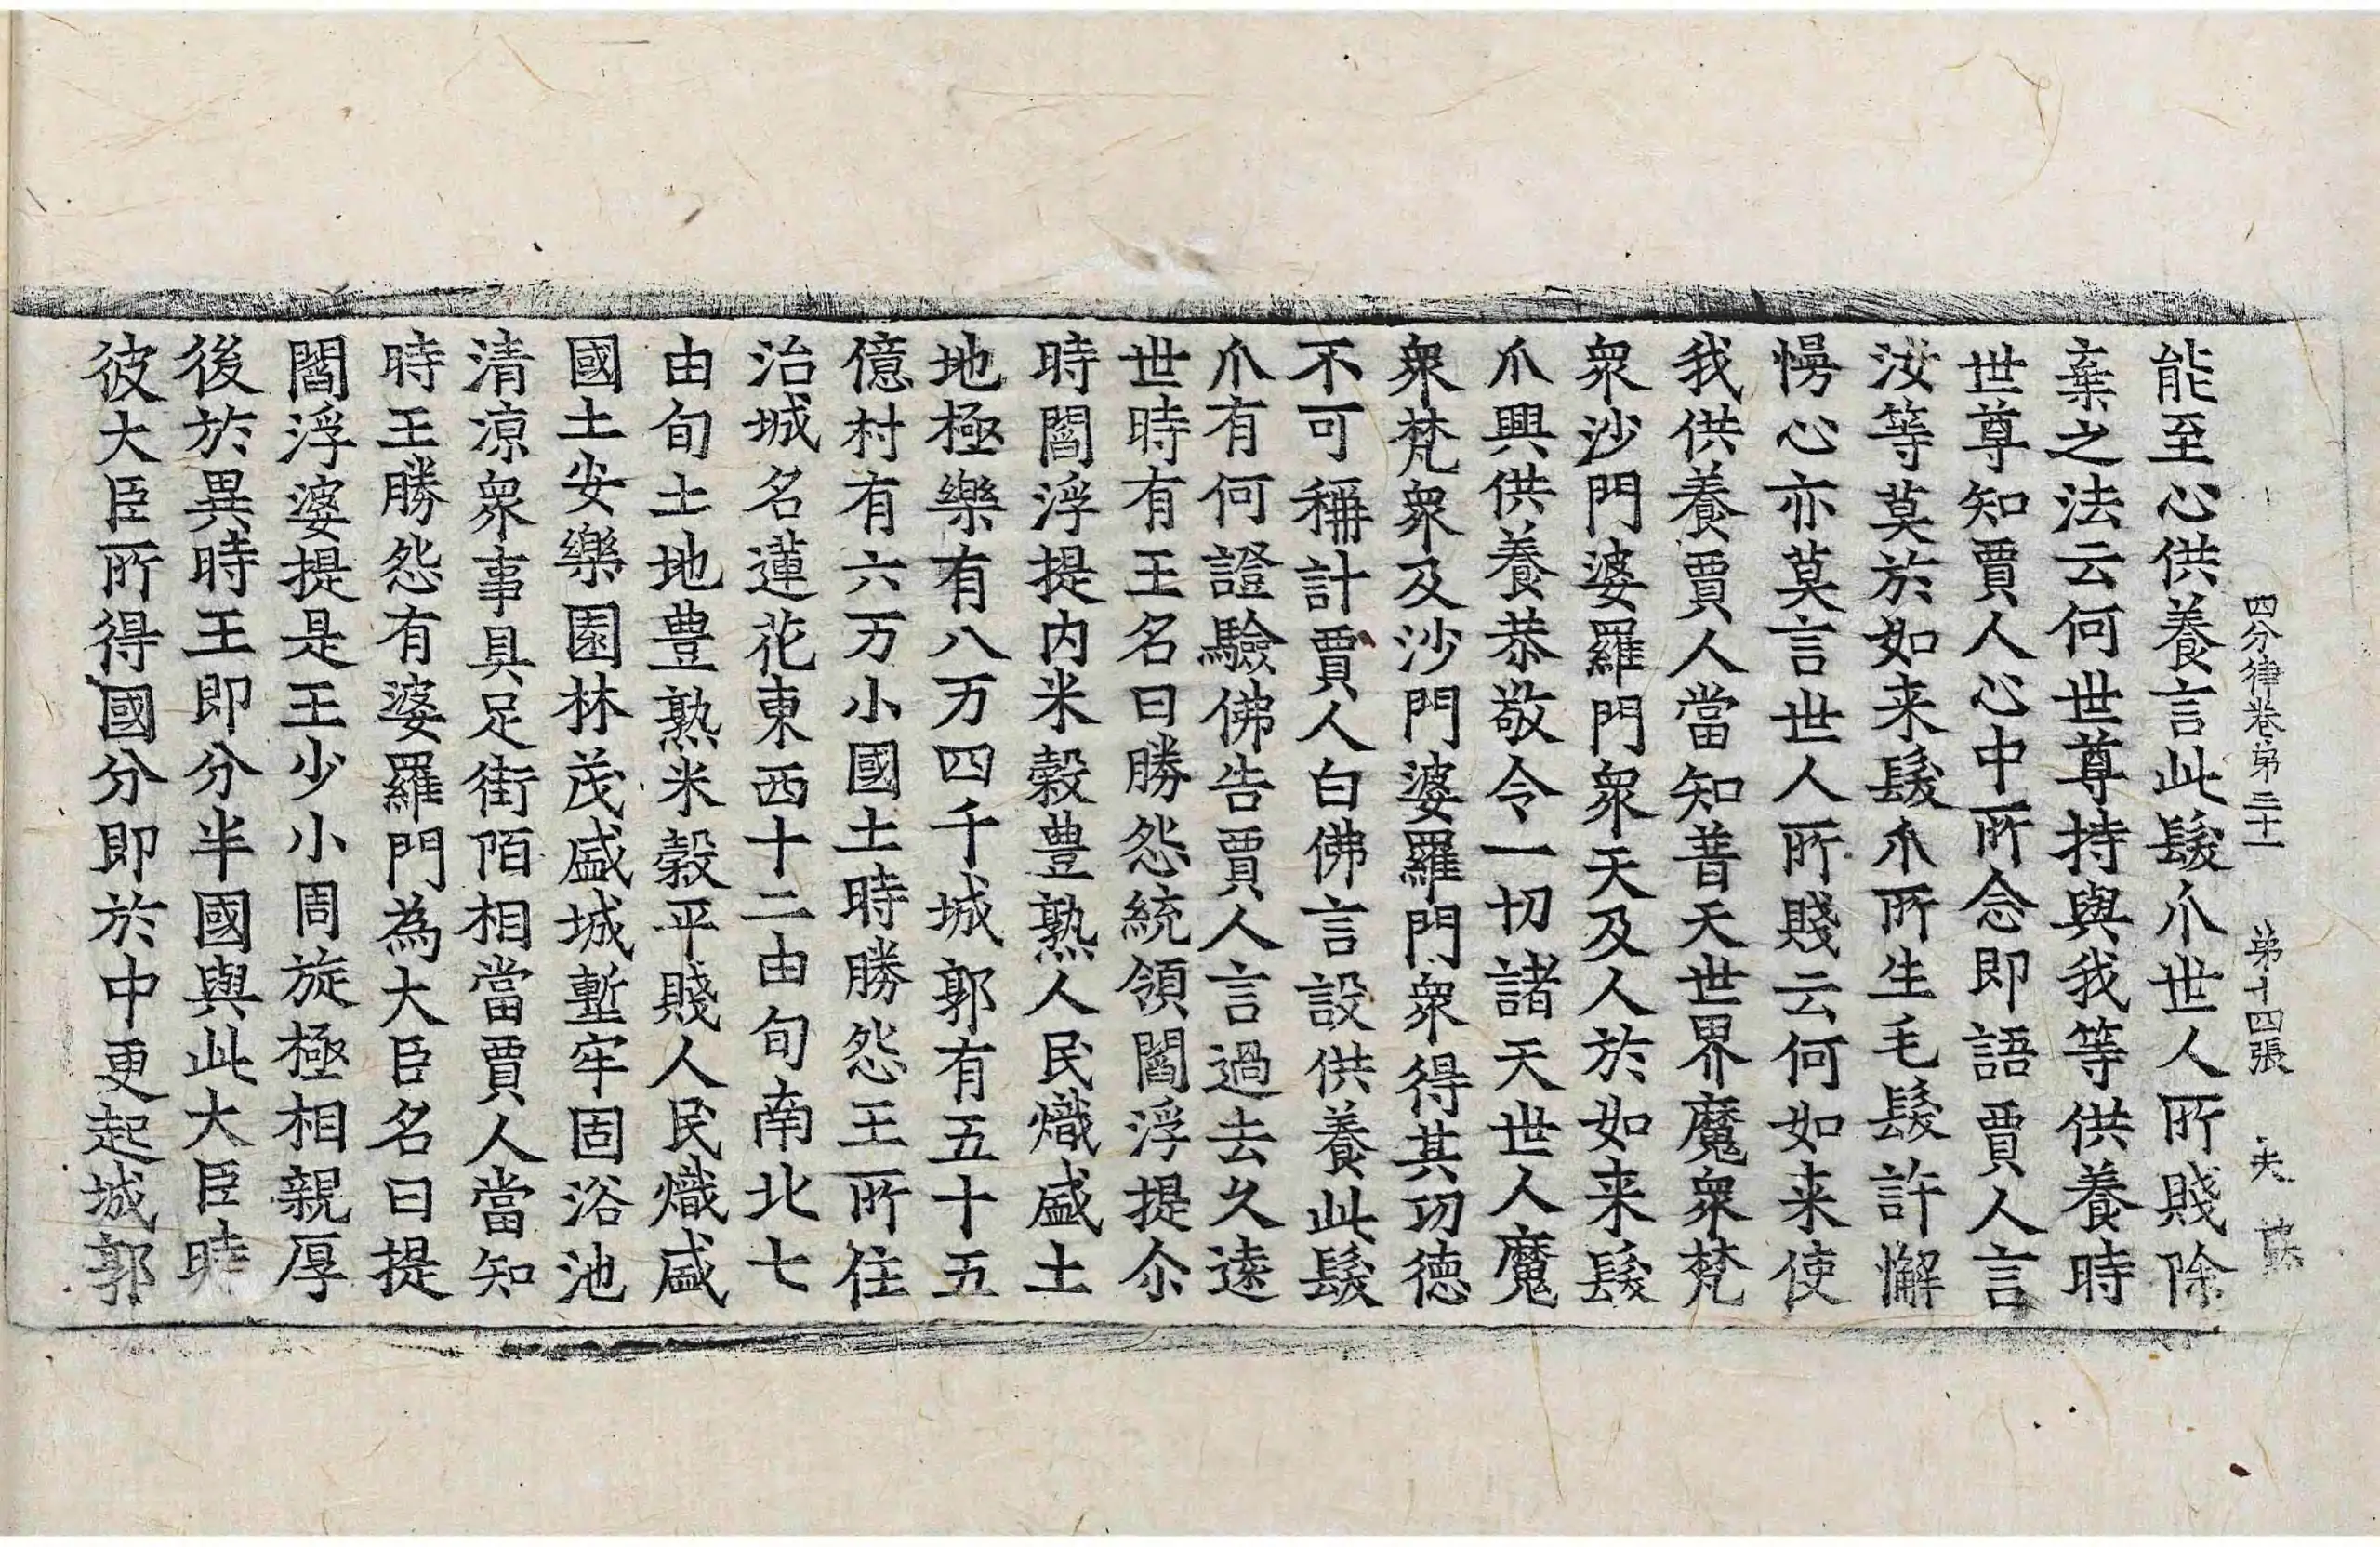 四分律卷第三十一　第十四張　夫
能至心供養言此髮爪世人所賤除
棄之法云何世尊持與我等供養時
世尊知賈人心中所念即語賈人言
汝等莫於如来髮爪所生毛髮許懈
慢心亦莫言世人所賤云何如来使
我供養賈人當知普天世界魔衆梵
衆沙門婆羅門衆天及人於如来髮
爪興供養恭敬令一切諸天世人魔
衆梵衆及沙門婆羅門衆得其功德
不可稱計賈人白佛言設供養此髮
爪有何證驗佛告賈人言過去久遠
世時有王名曰勝怨統領閻浮提尒
時閻浮提内米穀豊熟人民熾盛土
地極樂有八万四千城郭有五十五
億村有六万小國土時勝怨王所住
治城名蓮花東西十二由旬南北七
由旬土地豊熟米穀平賤人民熾盛
國土安樂園林茂盛城塹牢固浴池
清涼衆事具足街陌相當賈人當知
時王勝怨有婆羅門為大臣名曰提
閻浮婆提是王少小周旋極相親厚
後於異時王即分半國與此大臣時
彼大臣所得國分即於中更起城郭